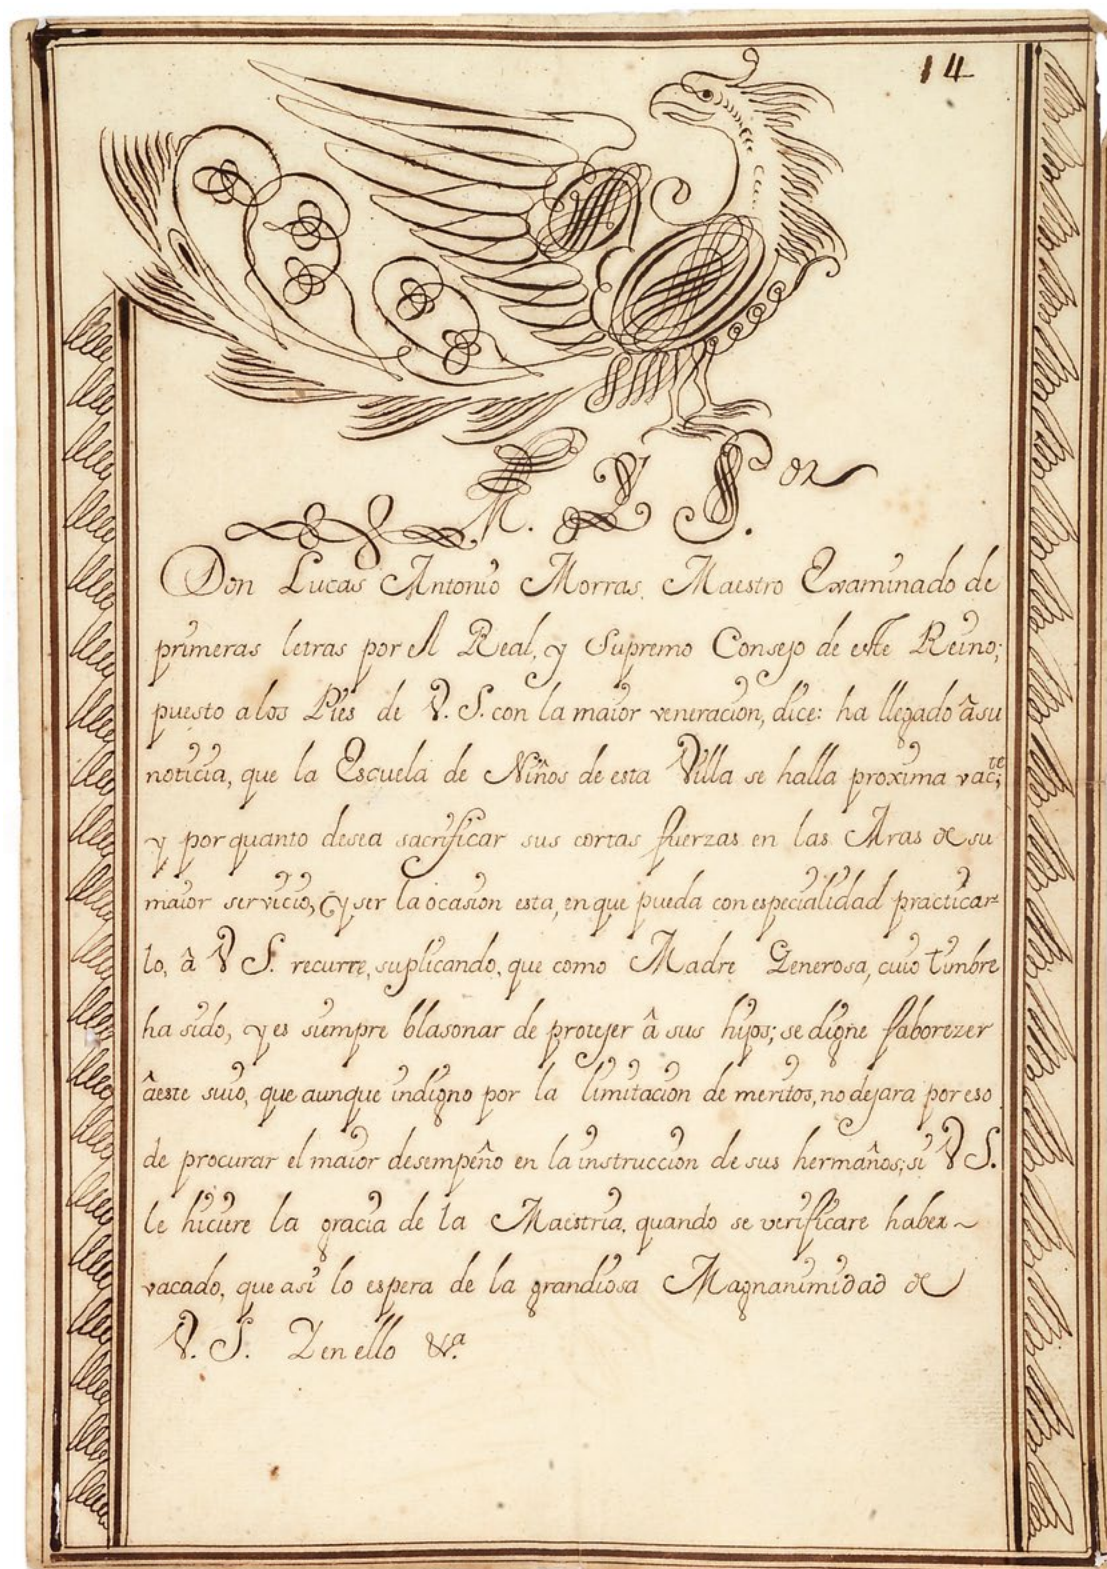 14
M. Y. S.or
Don Lucas Antonio Morras, Maestro Examinado de
primeras letras por el Real, y Supremo Consejo de este Reino;
puesto a los Pies de V. S. con la maior veneracion, dice: ha llegado â su
noticia, que la Escuela de Niños de esta Villa se halla proxima vac.te;
y por quanto desea sacrificar sus cortas fuerzas en las Aras de su
maior servicio, y ser la ocasion esta, en que pueda con especialidad practicar=
lo, â V S. recurre, suplicando, que como Madre Generosa, cuio timbre
ha sido, y es siempre blasonar de protejer â sus hijos; se digne faborezer
âeste suio, que aunque indigno por la limitacion de meritos, no dejara por eso
de procurar el maior desempeño en la instruccion de sus hermaños; si V S.
le hiciere la gracia de la Maestria, quando se verificare haber~
vacado, que asi lo espera de la grandiosa Magnanimidad de
V. S. Y en ello &.a